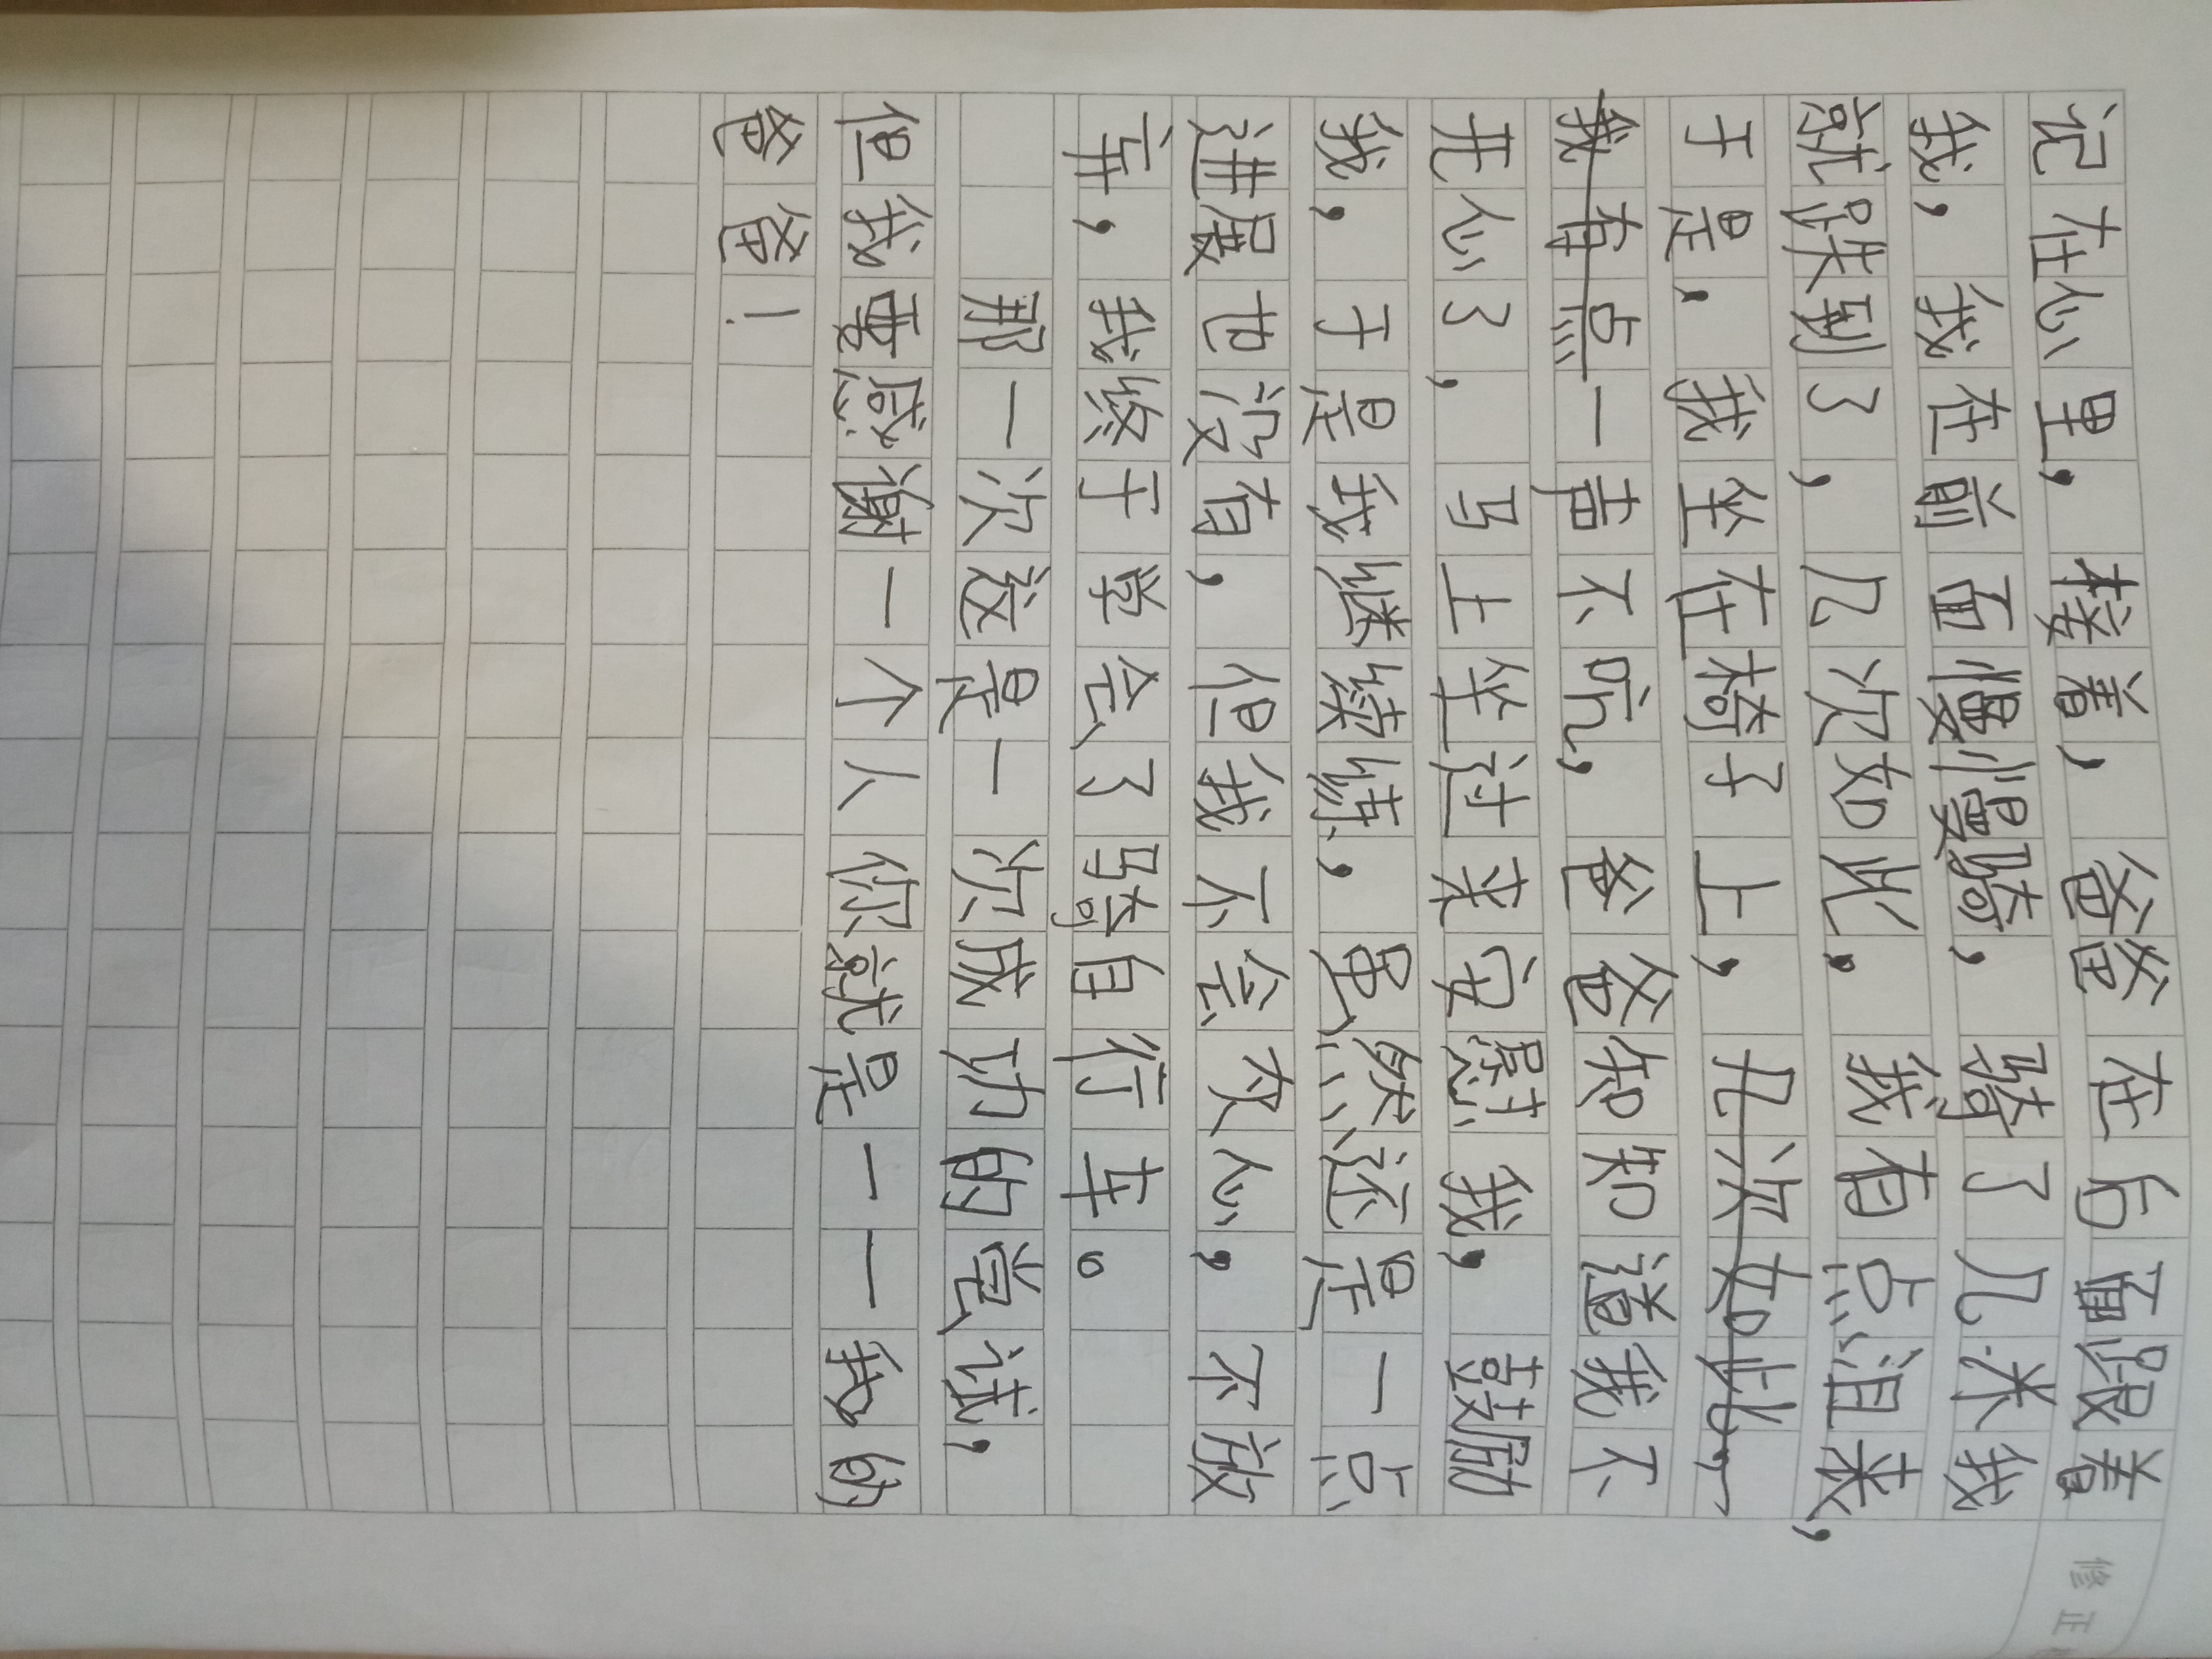 记在心里，接着，爸爸在后面跟着
我，我在前面慢慢骑，骑了几米我
就跌到了，几次如此。我有点沮丧，
于是，我坐在椅子上，几次如此，
我有点一声不吭，爸爸知知道我不
开心了，马上坐过来安慰我，鼓励
我，于是我继续练，虽然还是一点
进展也没有，但我不会灰心，不放
弃，我终于学会了骑自行车。
那一次这是一次成功的尝试，
但我要感谢一个人你就是——我的
爸爸！
修正